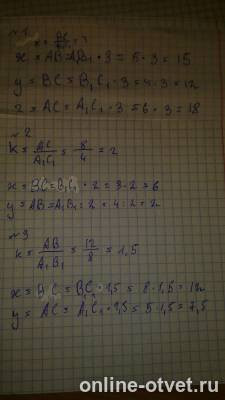 №1
k = = 3
x = AB = A₁B₁ · 3 = 5 · 3 = 15
y = BC = B₁C₁ · 3 = 4 · 3 = 12
z = AC = A₁C₁ · 3 = 6 · 3 = 18
№2
k = AC/A₁C₁ = 8/4 = 2
x = BC = B₁C₁ · 2 = 3 · 2 = 6
y = AB = A₁B₁ : 2 = 4 : 2 = 2
№3
k = AB/A₁B₁ = 12/8 = 1,5
x = BC = B₁C₁ · 1,5 = 8 · 1,5 = 12
y = AC = A₁C₁ · 1,5 = 5 · 1,5 = 7,5
online-otvet.ru